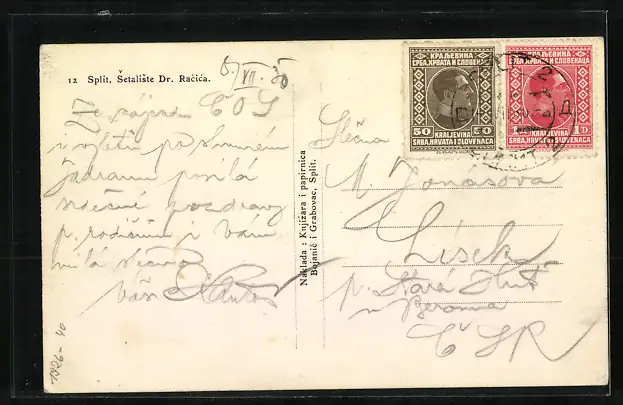 12 Split, Šetalište Dr. Račića.
VII. 30
Ze zájezdu ČOS
i výletu po
Jadranu
srdečné pozdravy
p. rodičům i Vám
milá slečno
Váš
Naklada : Knjižara i papirnica
Bujanić i Grabovac, Split.
КРАЉЕВИНА
СРБА,ХРВАТА И СЛОВЕНАЦА
50 50
KRALJEVINA
SRBA, HRVATA I SLOVENACA
КРАЉЕВИНА
СРБА,ХРВАТА И СЛОВЕНАЦА
1 D
KRALJEVINA
SRBA, HRVATA I SLOVENACA
Slečna
M. Jonášova
Lísek
p. Stará Huť
u Berouna
ČSR
1926-40